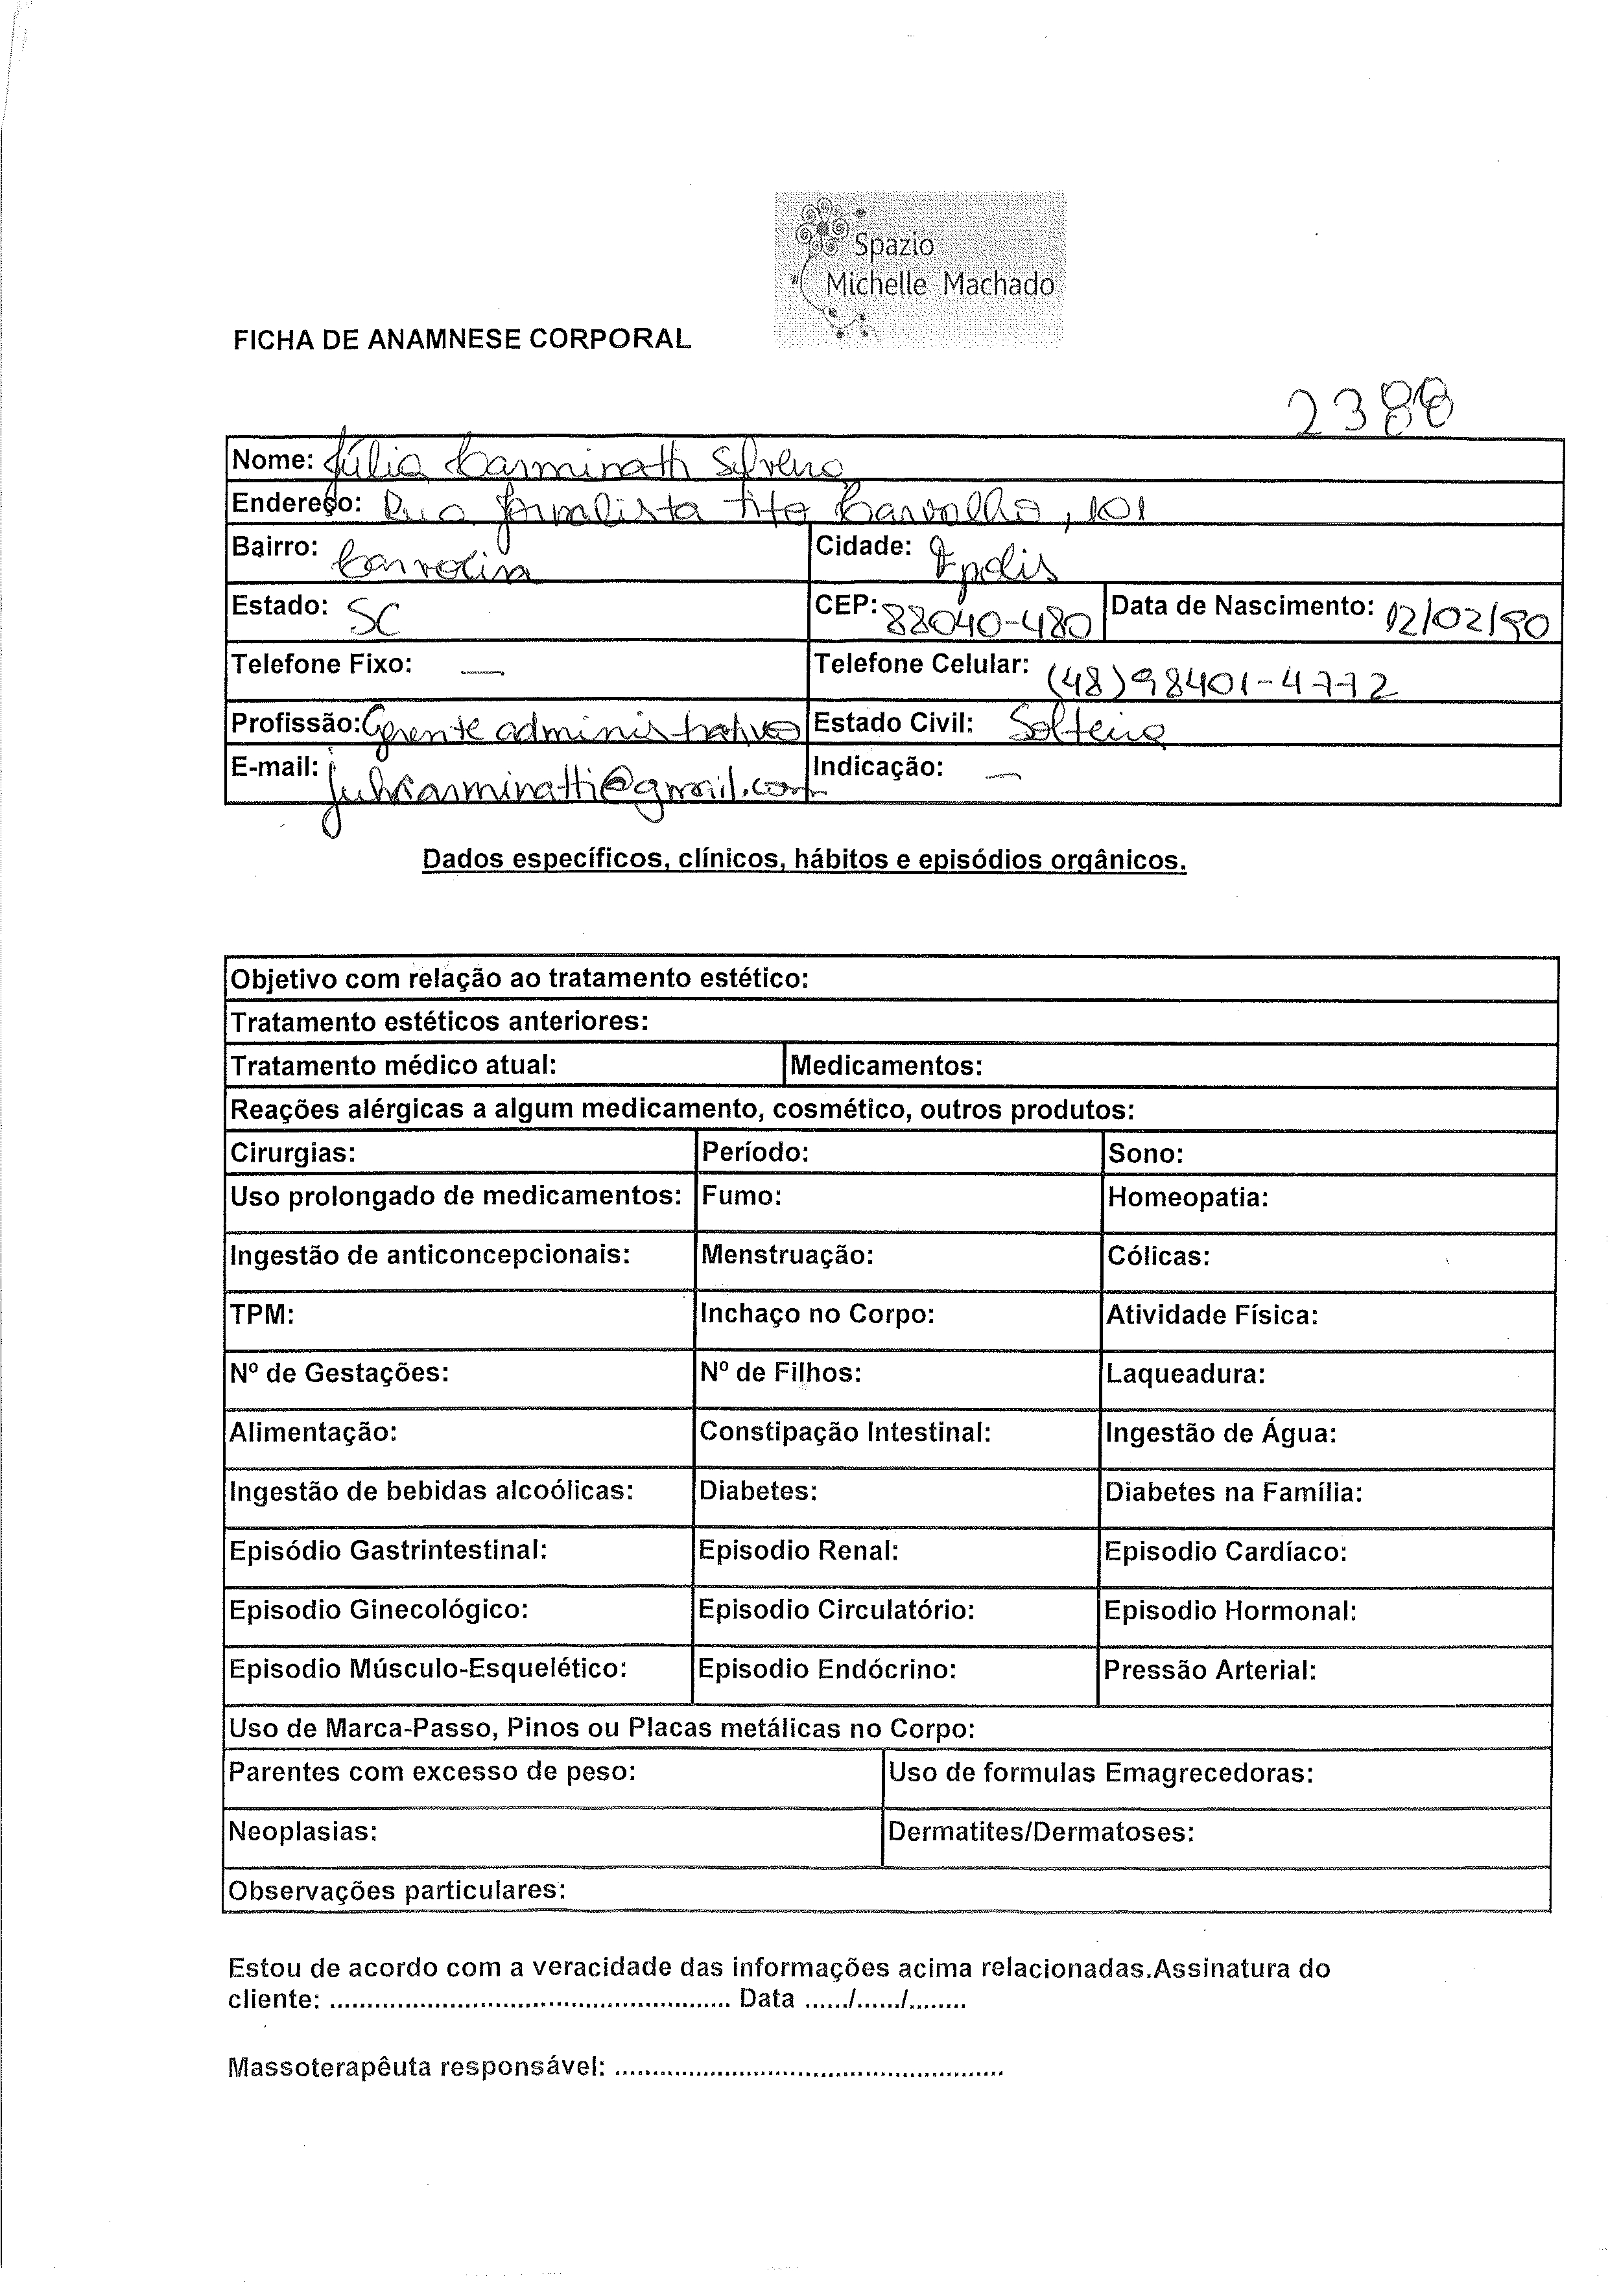 Spazio
Michelle Machado
FICHA DE ANAMNESE CORPORAL
2388
Nome: Júlia Carminatti Silveira
Endereço: Rua Jornalista Tito Carvalho, 101
Bairro: Carvoeira Cidade: Fpolis
Estado: SC CEP: 88040-480 Data de Nascimento: 12/02/90
Telefone Fixo: — Telefone Celular: (48)98401-4772
Profissão: Gerente administrativo Estado Civil: Solteira
E-mail: juhcarminatti@gmail.com Indicação: —
Dados específicos, clínicos, hábitos e episódios orgânicos.
Objetivo com relação ao tratamento estético:
Tratamento estéticos anteriores:
Tratamento médico atual: Medicamentos:
Reações alérgicas a algum medicamento, cosmético, outros produtos:
Cirurgias: Período: Sono:
Uso prolongado de medicamentos: Fumo: Homeopatia:
Ingestão de anticoncepcionais: Menstruação: Cólicas:
TPM: Inchaço no Corpo: Atividade Física:
Nº de Gestações: Nº de Filhos: Laqueadura:
Alimentação: Constipação Intestinal: Ingestão de Água:
Ingestão de bebidas alcoólicas: Diabetes: Diabetes na Família:
Episódio Gastrintestinal: Episodio Renal: Episodio Cardíaco:
Episodio Ginecológico: Episodio Circulatório: Episodio Hormonal:
Episodio Músculo-Esquelético: Episodio Endócrino: Pressão Arterial:
Uso de Marca-Passo, Pinos ou Placas metálicas no Corpo:
Parentes com excesso de peso: Uso de formulas Emagrecedoras:
Neoplasias: Dermatites/Dermatoses:
Observações particulares:
Estou de acordo com a veracidade das informações acima relacionadas.Assinatura do
cliente: ...................................................... Data ....../....../........
Massoterapêuta responsável: ....................................................